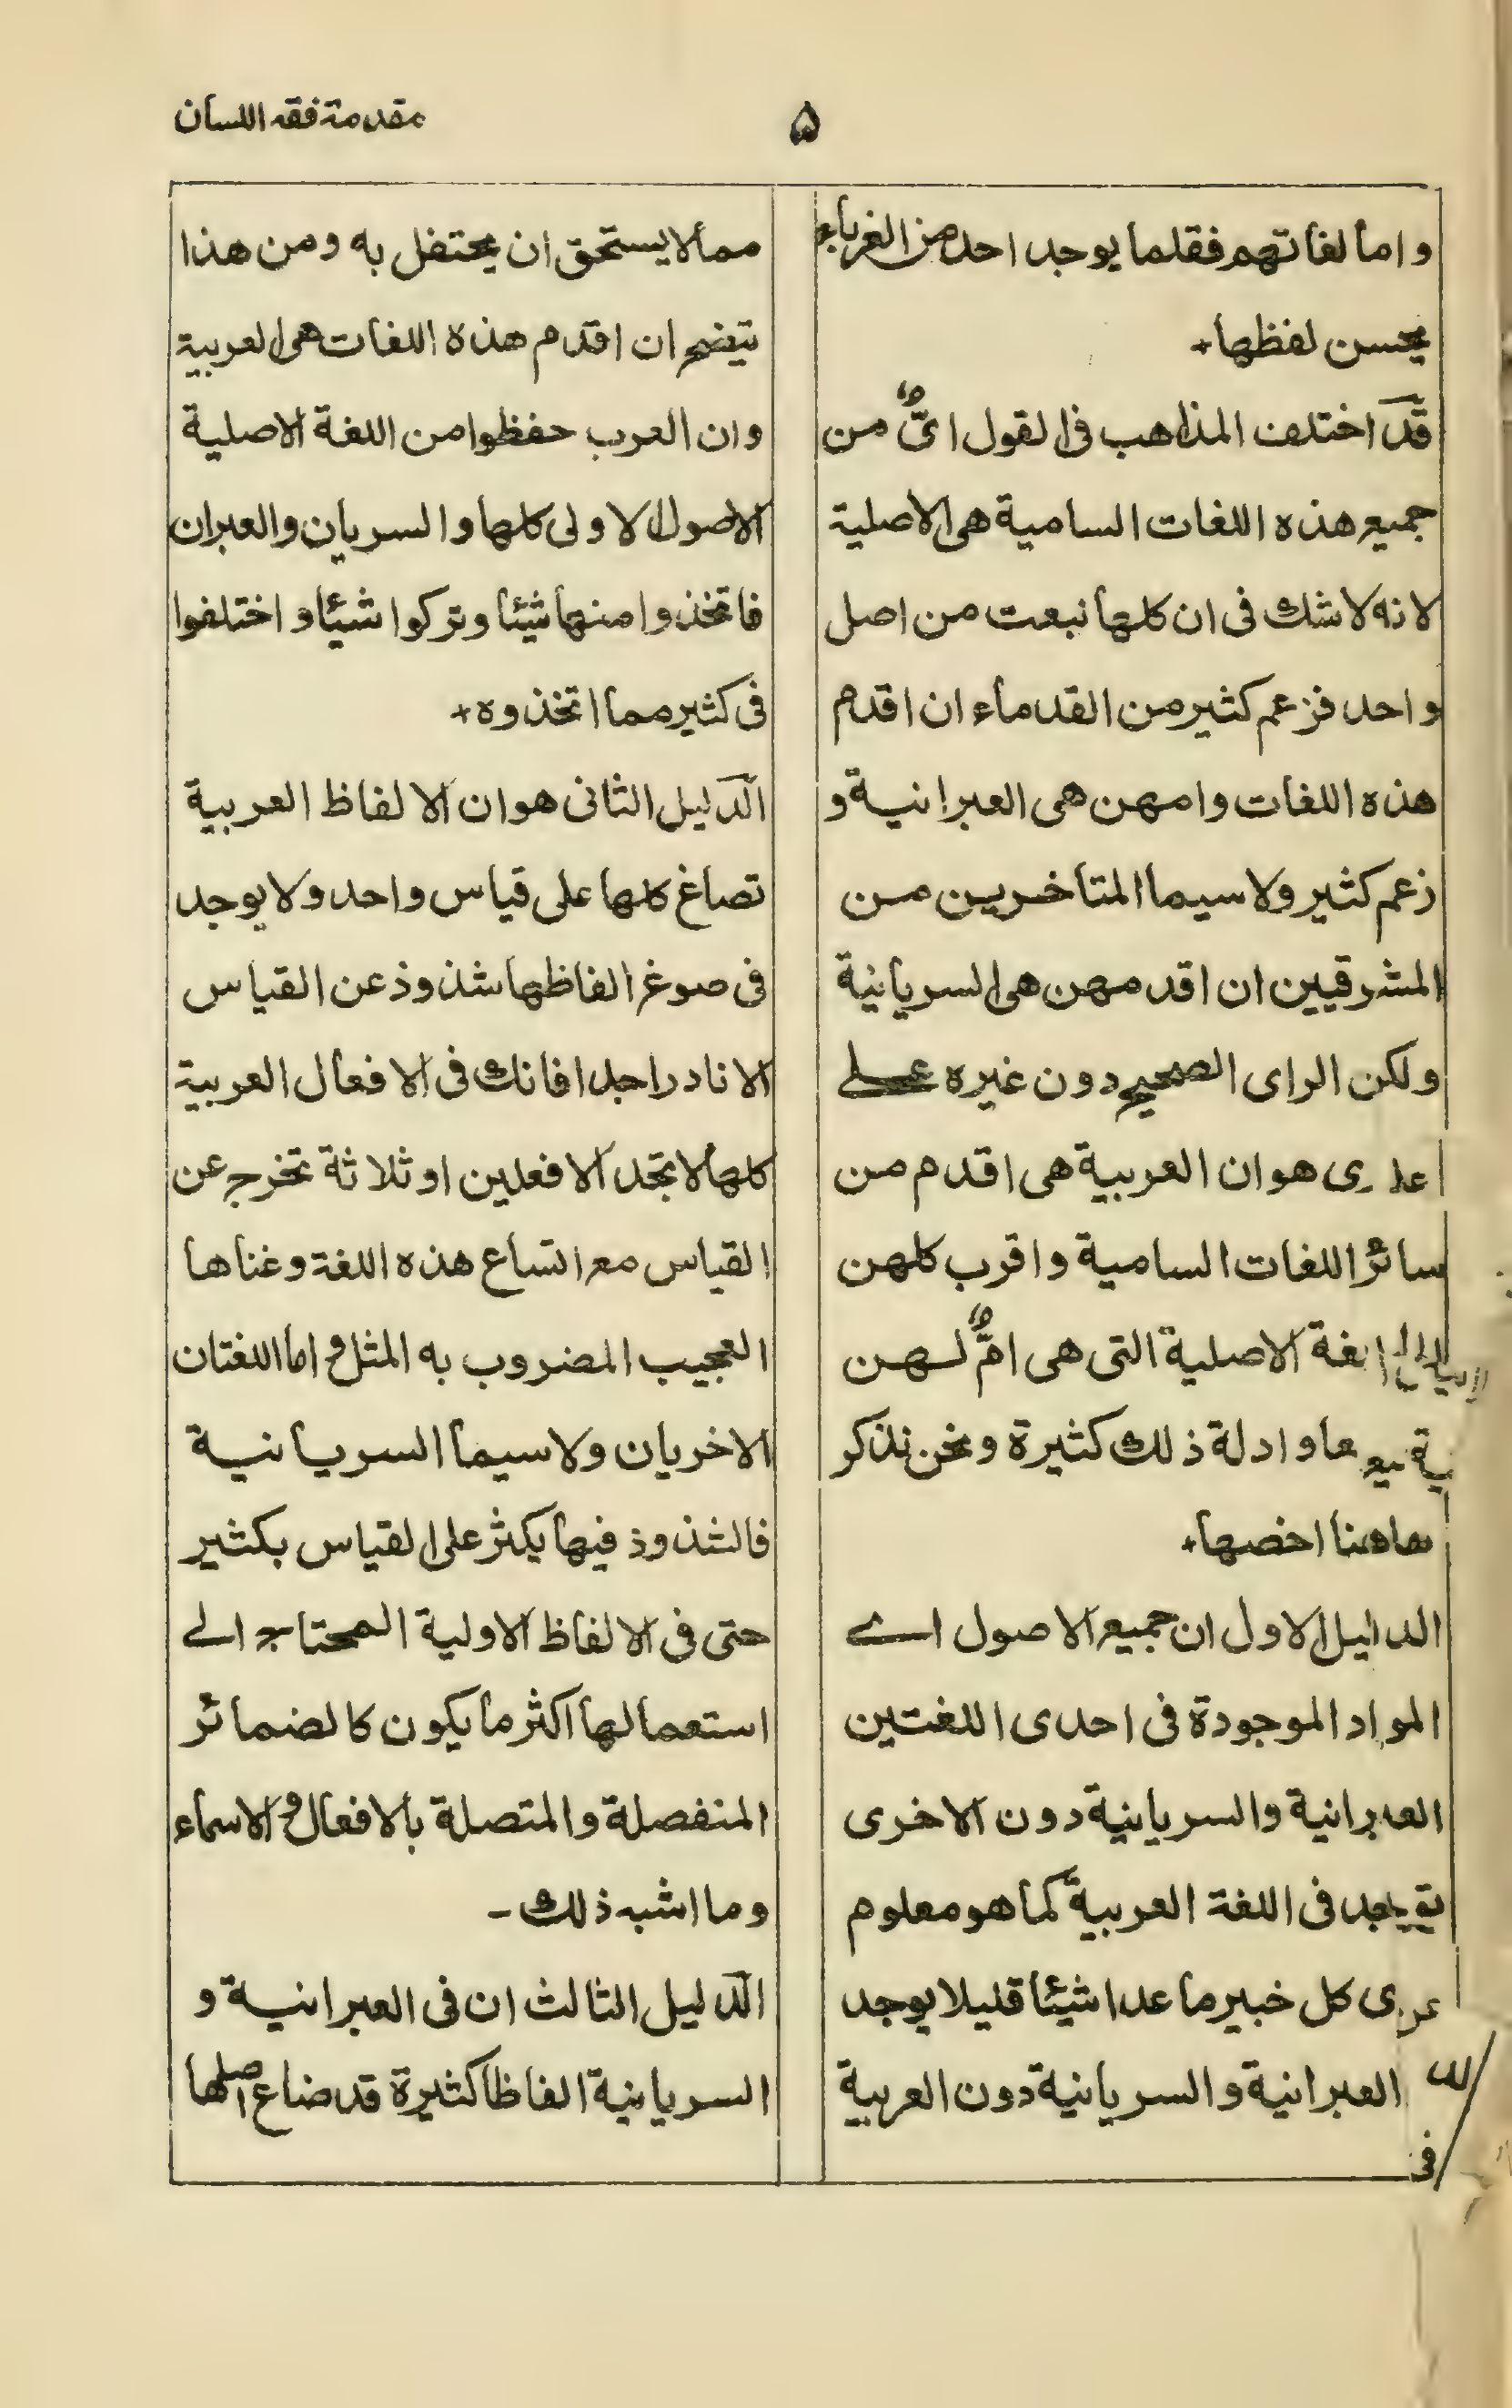 مقدمة فقه اللسان
۵
واما لغاتهم فقلما يوجد احد من الغرباء
يحسن لفظها+
قد اختلف المذاهب فى القول اىٌّ من
جميع هذه اللغات السامية هى الاصلية
لانه لا شك فى ان كلها نبعت من اصل
واحد فزعم كثير من القدماء ان اقدم
هذه اللغات وامهن هى العبرانية و
زعم كثير ولا سيما المتاخرين من
المشرقيين ان اقدمهن هى السريانية
ولكن الراى الصحيح دون غيره على
هو ان العربية هى اقدم من
سائر اللغات السامية واقرب كلهن
الاصلية التى هى امٌّ لهن
وادلة ذلك كثيرة ونحن نذكر
هاهنا اخصها+
الدليل الاول ان جميع الاصول اے
المواد الموجودة فى احدى اللغتين
العبرانية والسريانية دون الاخرى
فى اللغة العربية كما هو معلوم
كل خبير ما عدا شيئا قليلا يوجد
فى العبرانية والسريانية دون العربية
مما لا يستحق ان يحتفل به ومن هذا
يتضح ان اقدم هذه اللغات هى العربية
وان العرب حفظوا من اللغة الاصلية
الاصول الاولى كلها والسريان والعبران
فاتخذوا منها شيئا وتركوا شيئا واختلفوا
فى كثير مما اتخذوه+
الدليل الثانى هو ان الالفاظ العربية
تصاغ كلها على قياس واحد ولا يوجد
فى صوغ الفاظها شذوذ عن القياس
الا نادرا جدا فانك فى الافعال العربية
كلها لا تجد الا فعلين او ثلاثة تخرج عن
القياس مع اتساع هذه اللغة وغناها
العجيب المضروب به المثل واما اللغتان
الاخريان ولا سيما السريانية
فالشذوذ فيها يكثر على القياس بكثير
حتى فى الالفاظ الاولية المحتاج الے
استعمالها اكثر ما يكون كالضمائر
المنفصلة والمتصلة بالافعال والاسماء
وما اشبه ذلك -
الدليل الثالث ان فى العبرانية و
السريانية الفاظا كثيرة قد ضاع اصلها